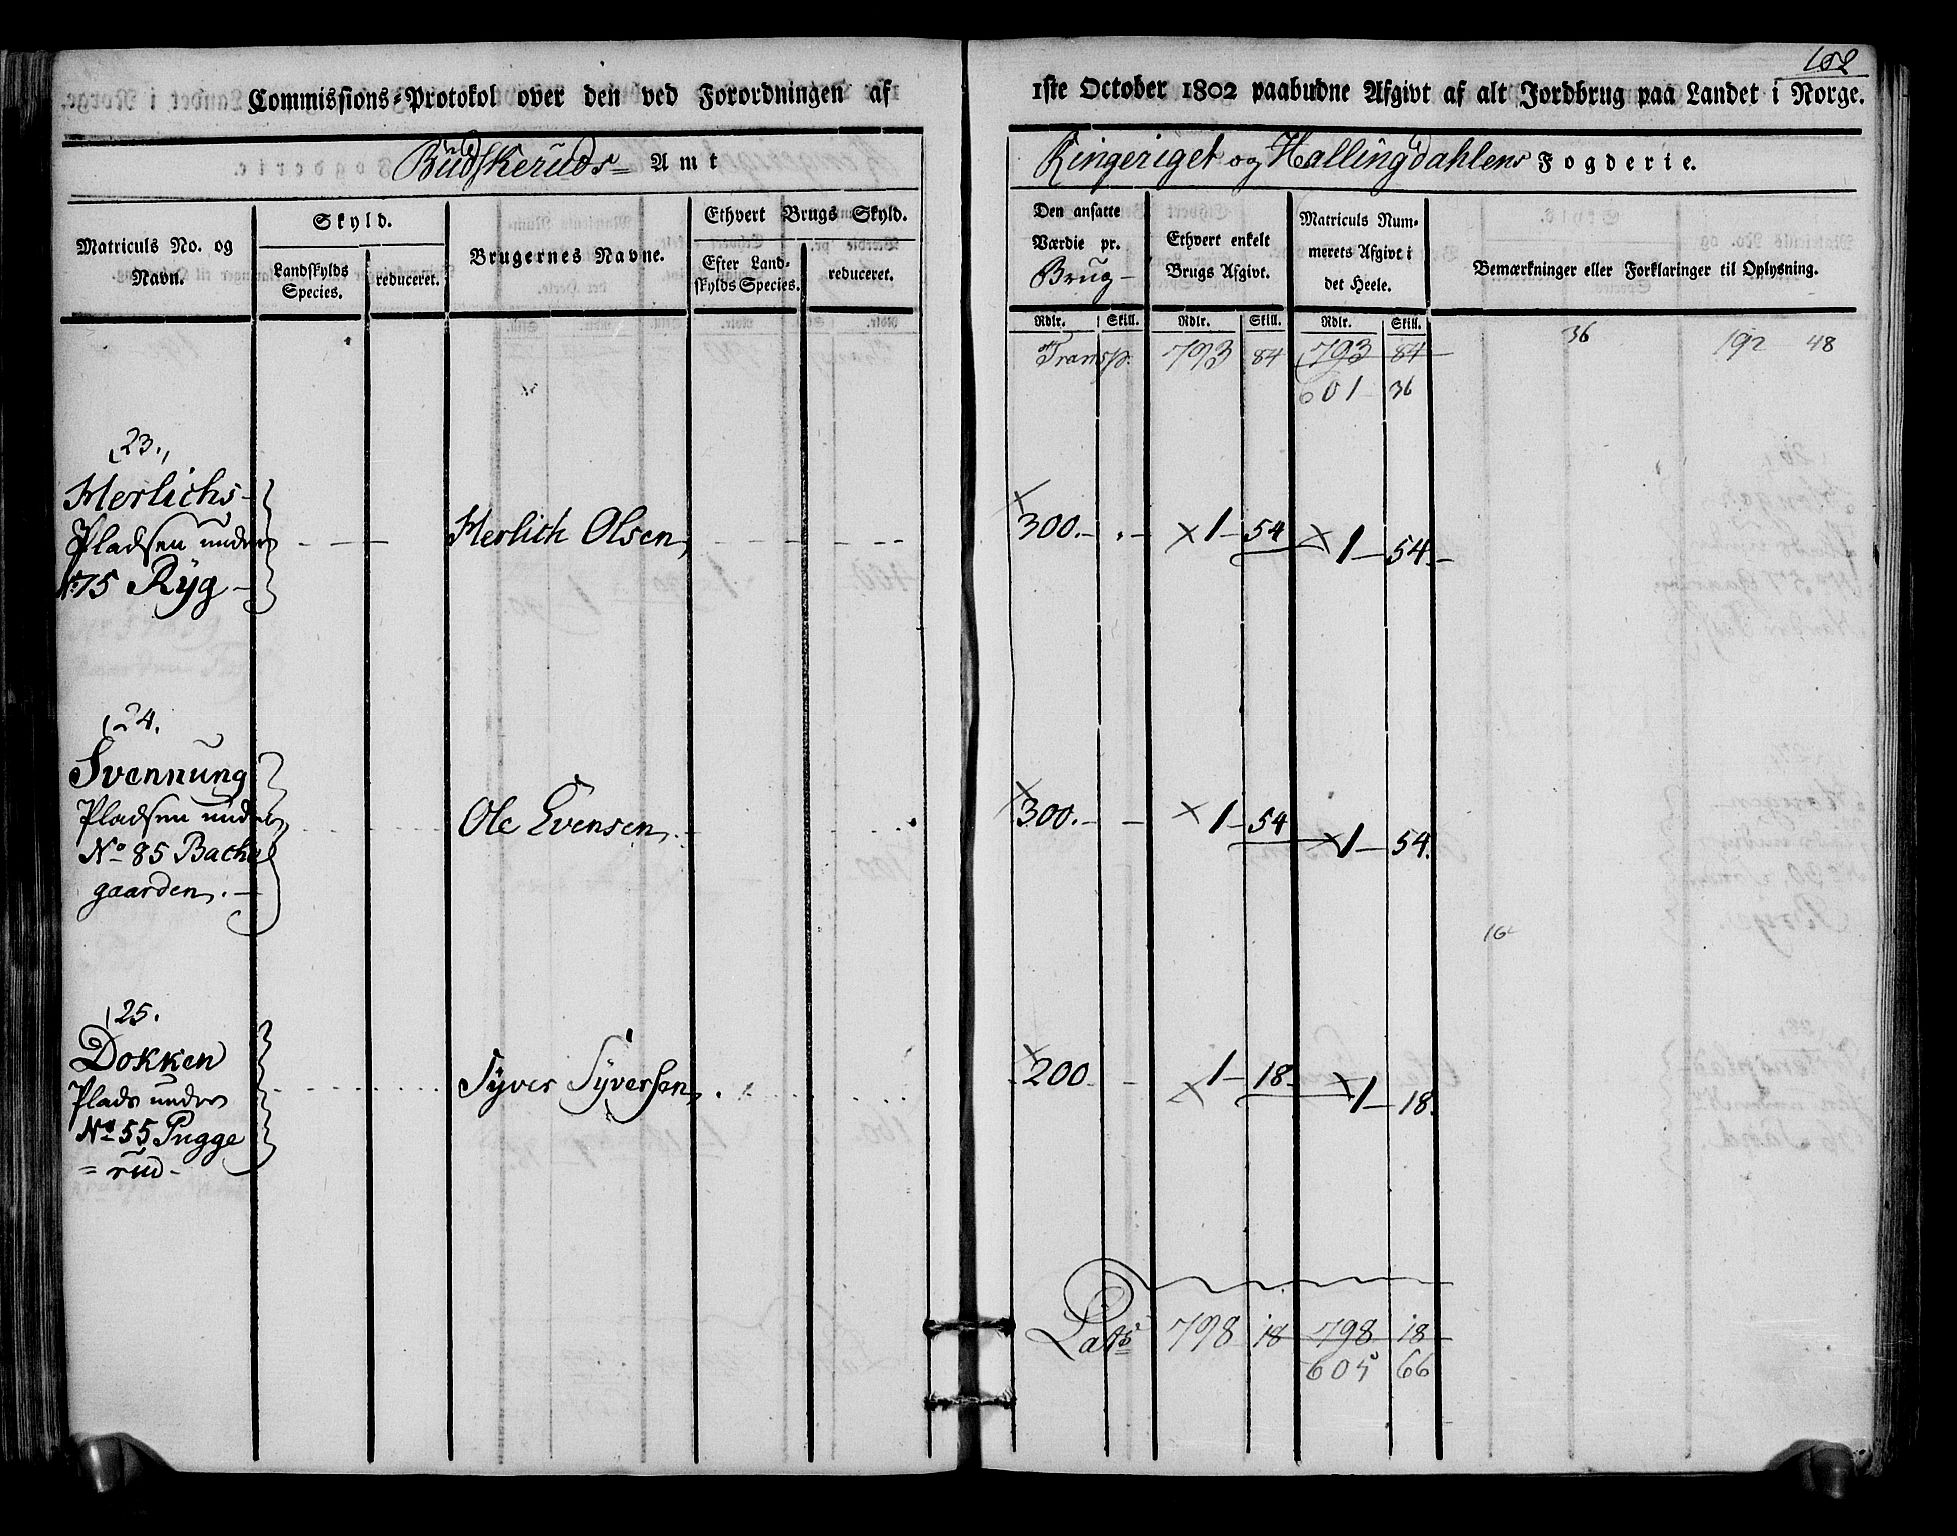 152
Commissions-Protokol over den ved Forordningen af 1ste October 1802 paabudne Afgivt af alt Jordbrug paa Landet i Norge.
Budskeruds Amt
Ringeriget og Hallingdahlens Fogderie.
Matriculs No. og Navn.
Skyld.
Landskylds Species.
reduceret.
Brugernes Navne.
Ethvert Brugs Skyld.
Efter Landskylds Species.
reduceret.
Den ansatte Værdie pr. Brug
Ethvert enkelt Brugs Afgivt.
Matriculs Nummerets Afgivt i det Heele.
Bemærkninger eller Forklaringer til Oplysning.
Rdlr. Skill. Rdlr. Skill. Rdlr. Skill.
Transp. 793 84 793 84 36 192 48
601 36
23.
Herlichs-
Pladsen under
No 75 Ryg
Herlich Olsen
300. 1 54 1 54.
24.
Svennung
Pladsen under
No 85 Bache
gaarden.
Ole Evensen
300. 1 54 1 54.
16
25.
Dokken
Plads under
No 55 Pugge
=rud
Syver Syversen
200 1 18 1 18.
Lats 798 18 798 18
605 66